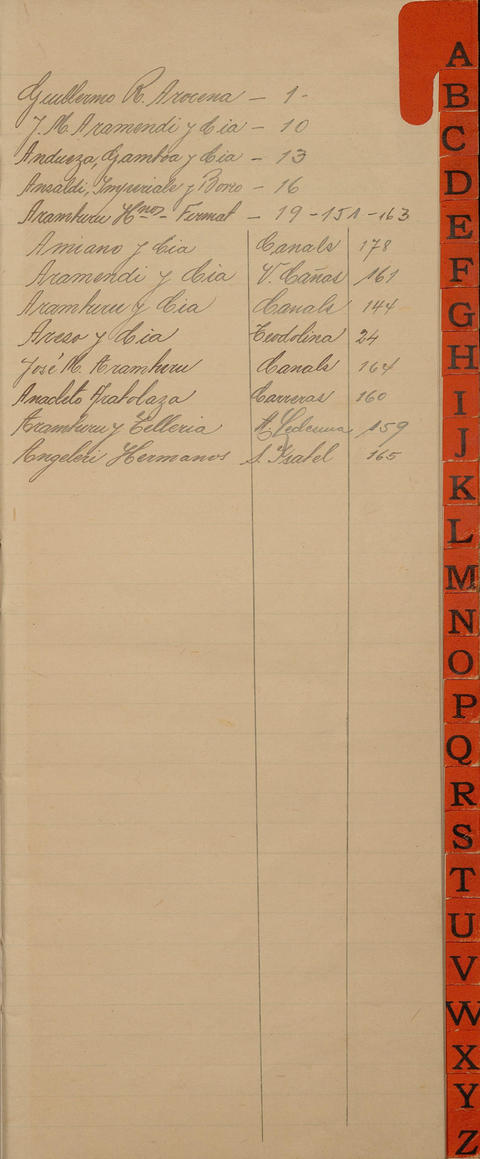 Guillermo R. Arocena - 1 -
J. M. Aramendi y Cia - 10
Andueza, Gamboa y Cia - 13
Ansaldi, Imperiale y Bovo - 16
Aramburu Hnos - Firmat - 19 - 151 - 163
Amiano y Cia Canals 178
Aramendi y Cia V. Cañas 161
Aramburu y Cia Canals 144
Areso y Cia Teodolina 24
José M. Aramburu Canals 164
Anacleto Apaolaza Carreras 160
Aramburu y Telleria A. Ledesma 159
Angeleri Hermanos S. Isabel 165
A
B
C
D
E
F
G
H
I
J
K
L
M
N
O
P
Q
R
S
T
U
V
W
X
Y
Z